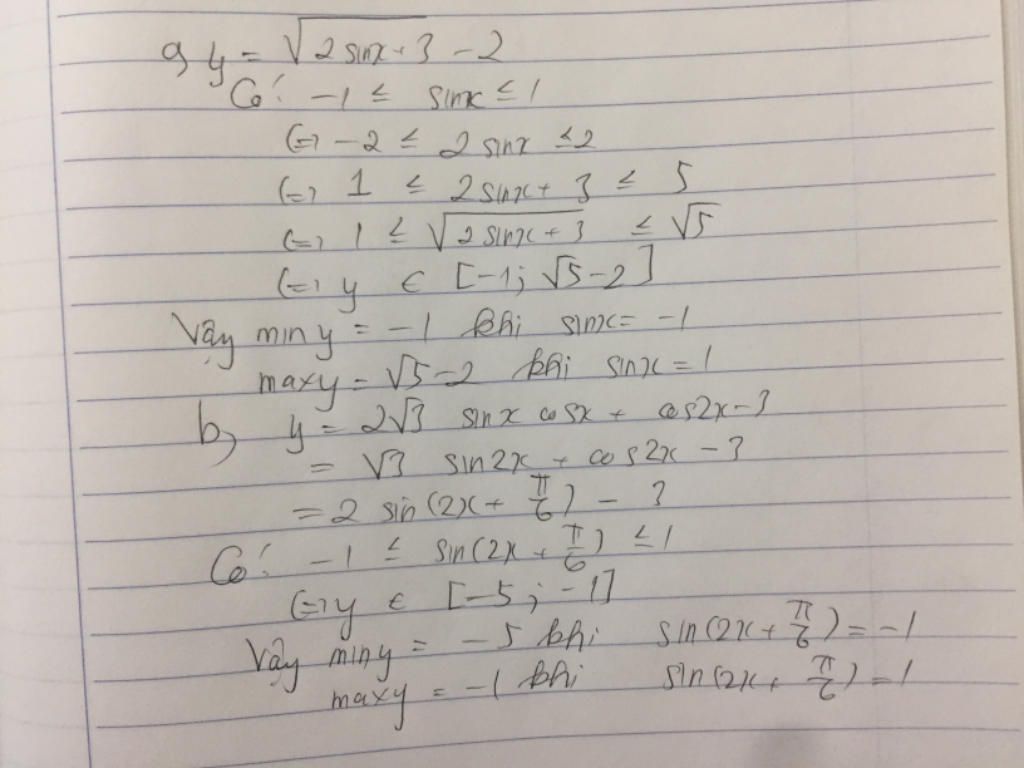 a, y = √(2 sinx + 3) - 2
Có: -1 ≤ sinx ≤ 1
(=) -2 ≤ 2 sinx ≤ 2
(=) 1 ≤ 2 sinx + 3 ≤ 5
(=) 1 ≤ √(2 sinx + 3) ≤ √5
(=) y ∈ [-1; √5-2]
Vậy min y = -1 khi sinx = -1
max y = √5-2 khi sinx = 1
b, y = 2√3 sinx cosx + cos2x - 3
= √3 sin2x + cos2x - 3
= 2 sin(2x + π/6) - 3
Có: -1 ≤ sin(2x + π/6) ≤ 1
(=) y ∈ [-5; -1]
Vậy min y = -5 khi sin(2x + π/6) = -1
max y = -1 khi sin(2x + π/6) = 1